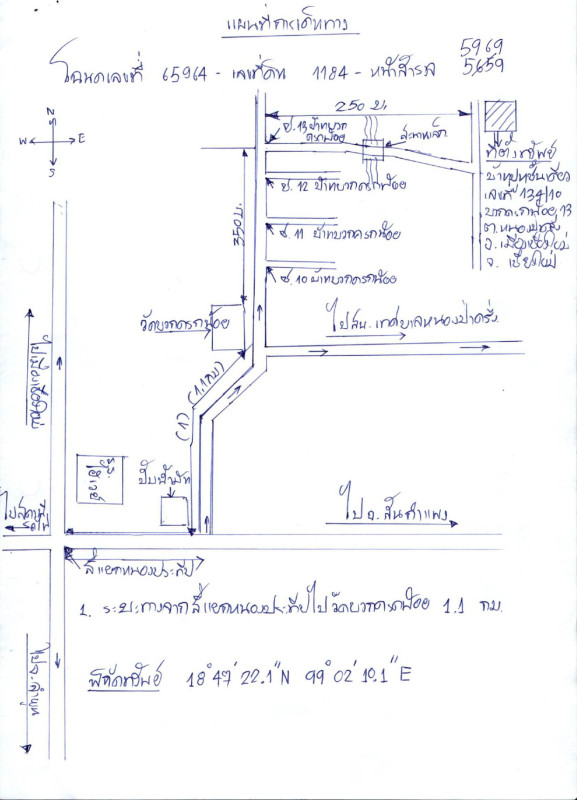 แผนที่การเดินทาง
โฉนดเลขที่ 65964 - เลขที่ดิน 1184 - หน้าสำรวจ 5969
5659
N
W E
S
250 ม.
ซ.13 บ้านบวก
ครกน้อย
สะพานเล็ก
ที่ตั้งทรัพย์
บ้านปูนชั้นเดียว
เลขที่ 134/10
บวกครกน้อย 13
ต.หนองป่าครั่ง
อ.เมืองเชียงใหม่
จ.เชียงใหม่
ซ.12 บ้านบวกครกน้อย
350 ม.
ซ.11 บ้านบวกครกน้อย
ซ.10 บ้านบวกครกน้อย
วัดบวกครกน้อย
ไปสนง.เทศบาลหนองป่าครั่ง
ไปเมืองเชียงใหม่
(1.1 กม)
(1)
ปั๊มน้ำมัน
ไปสถานี
รถไฟ
ไป อ.สันกำแพง
สี่แยกหนองประทีป
1. ระยะทางจากสี่แยกหนองประทีปไปวัดบวกครกน้อย 1.1 กม.
ไป จ.ลำพูน
พิกัดทรัพย์ 18° 47' 22.1" N 99° 02' 10.1" E